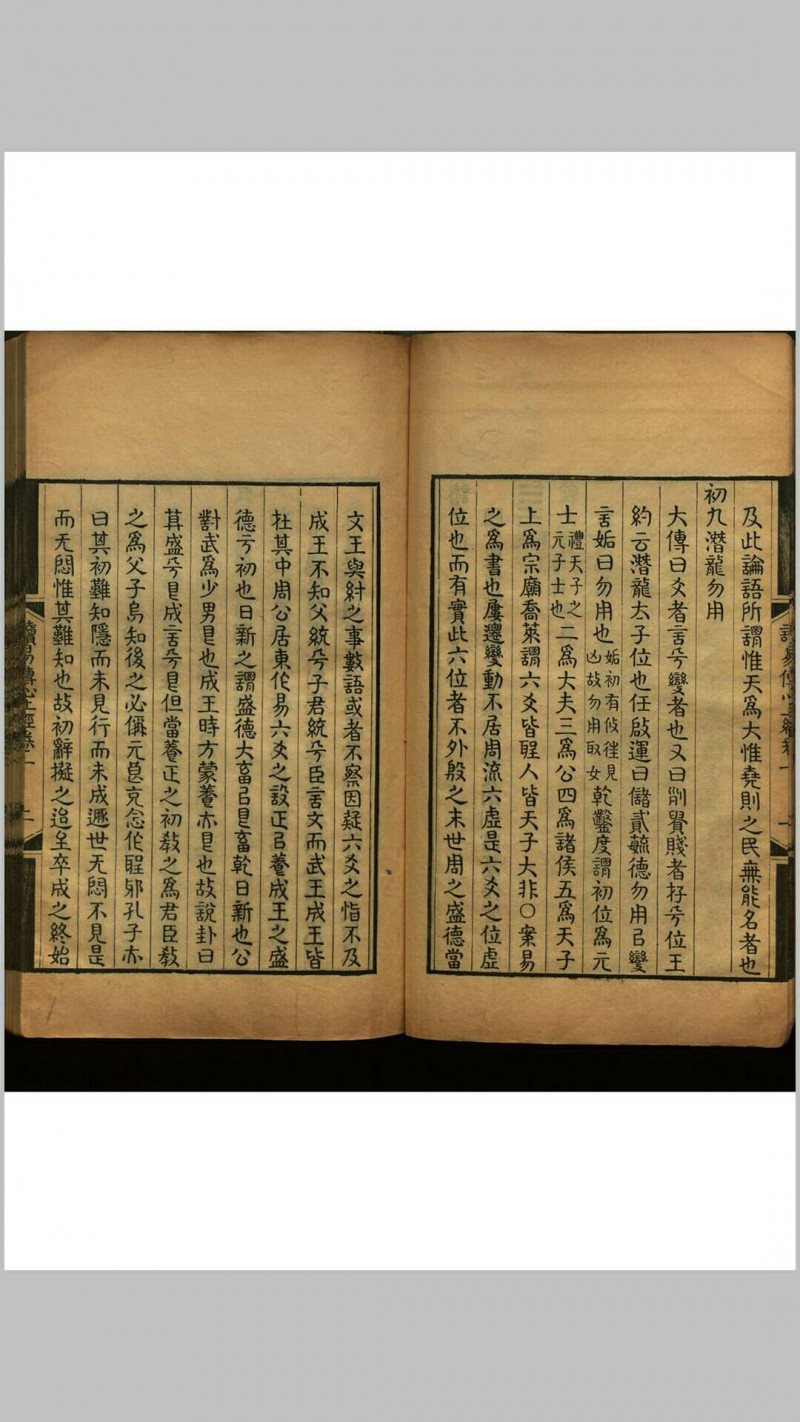 及此論語所謂惟天為大惟堯則之民無能名者也
初九潛龍勿用
大傳曰爻者言兮變者也又曰削貴賤者存兮位王
約云潛龍太子位也任啟運曰儲貳毓德勿用㠯變
言姤曰勿用也姤初有攸往見凶故勿用取女乾鑿度謂初位為元
士禮天子之元子士也二為大夫三為公四為諸侯五為天子
上為宗廟喬萊謂六爻皆聖人皆天子大非〇案易
之為書也屢遷變動不居周流六虛是六爻之位虛
位也而有實此六位者不外殷之末世周之盛德當
文王與紂之事數語或者不察因疑六爻之恉不及
成王不知父統兮子君統兮臣言文而武王成王皆
在其中周公居東作易六爻之設正㠯養成王之盛
德兮初也日新之謂盛德大畜㠯艮畜乾日新也公
對武為少男艮也成王時方蒙養亦艮也故說卦曰
其盛兮艮成言兮艮但當養正之初教之為君臣教
之為父子烏知後之必偁元良克念作聖邪孔子亦
曰其初難知隱而未見行而未成遯世无悶不見是
而无悶惟其難知也故初辭擬之迨至卒成之終始
讀易傳心上經卷一
上